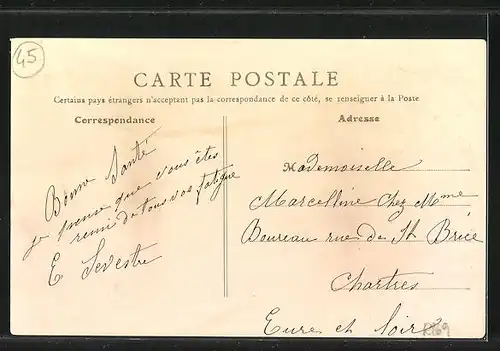 45
CARTE POSTALE
Certains pays étrangers n'acceptant pas la correspondance de ce côté, se renseigner à la Poste
Correspondance
Adresse
Bonne Santé
je pense que vous êtes
remi de tous vos fatigue
E Sevestre
Mademoiselle
Marcelline Chez Mme
Boureau rue de St Brice
Chartres
Eure et Loir